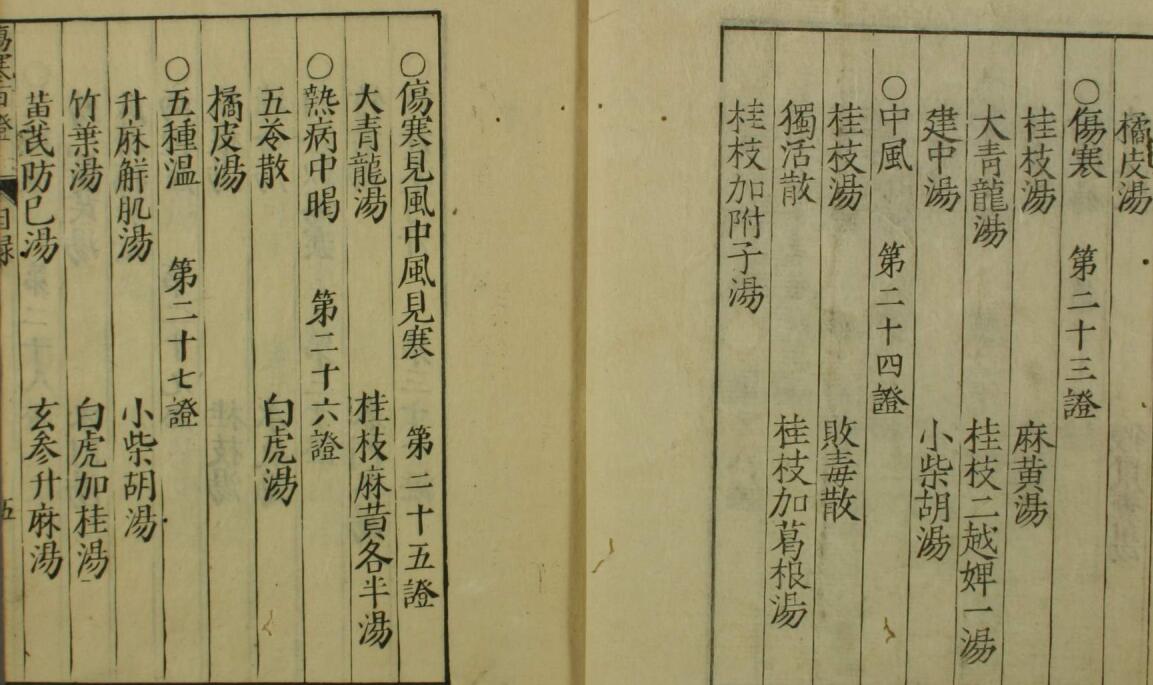 橘皮湯
○傷寒　第二十三證
桂枝湯　麻黄湯
大青龍湯　桂枝二越婢一湯
建中湯　小柴胡湯
○中風　第二十四證
桂枝湯　敗毒散
獨活散　桂枝加葛根湯
桂枝加附子湯
○傷寒見風中風見寒　第二十五證
大青龍湯　桂枝麻黄各半湯
○熱病中暍　第二十六證
五苓散　白虎湯
橘皮湯
○五種温　第二十七證
升麻解肌湯　小柴胡湯
竹葉湯　白虎加桂湯
黄芪防已湯　玄参升麻湯
傷寒百證　目録　五